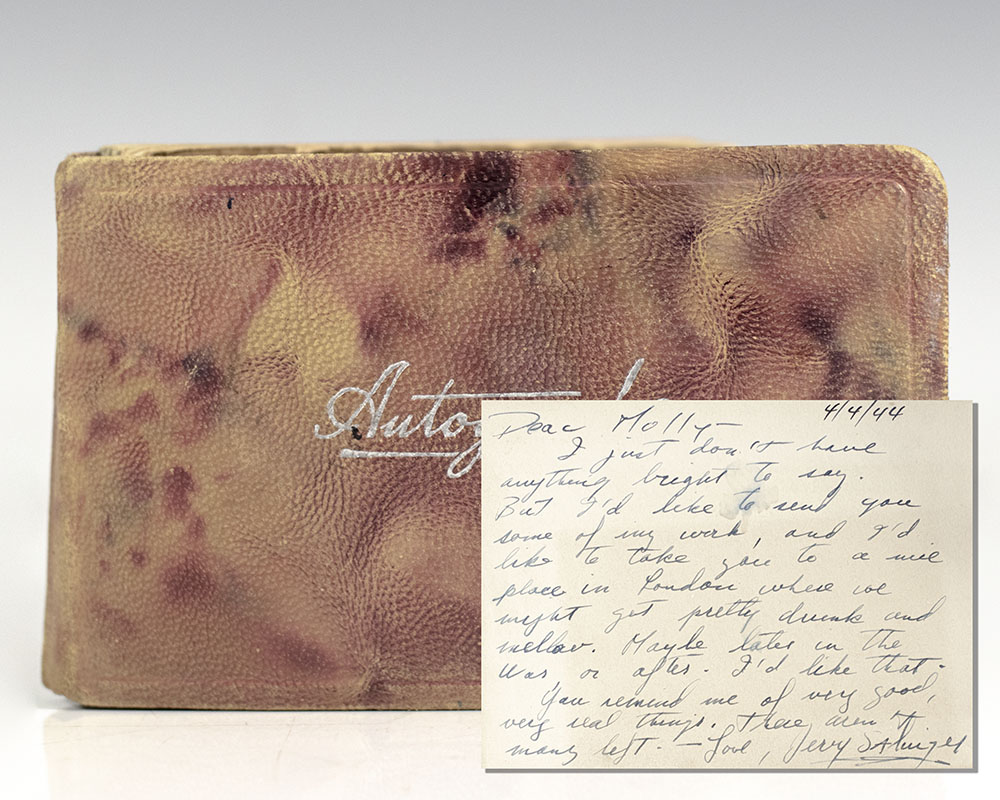 Autog
4/4/44
Dear Molly-
I just don't have
anything bright to say.
But I'd like to send you
some of my work, and I'd
like to take you to a nice
place in London where we
might get pretty drunk and
mellow. Maybe later in the
war or after. I'd like that.
You remind me of very good,
very real things. There aren't
many left. - Love, Jerry Salinger